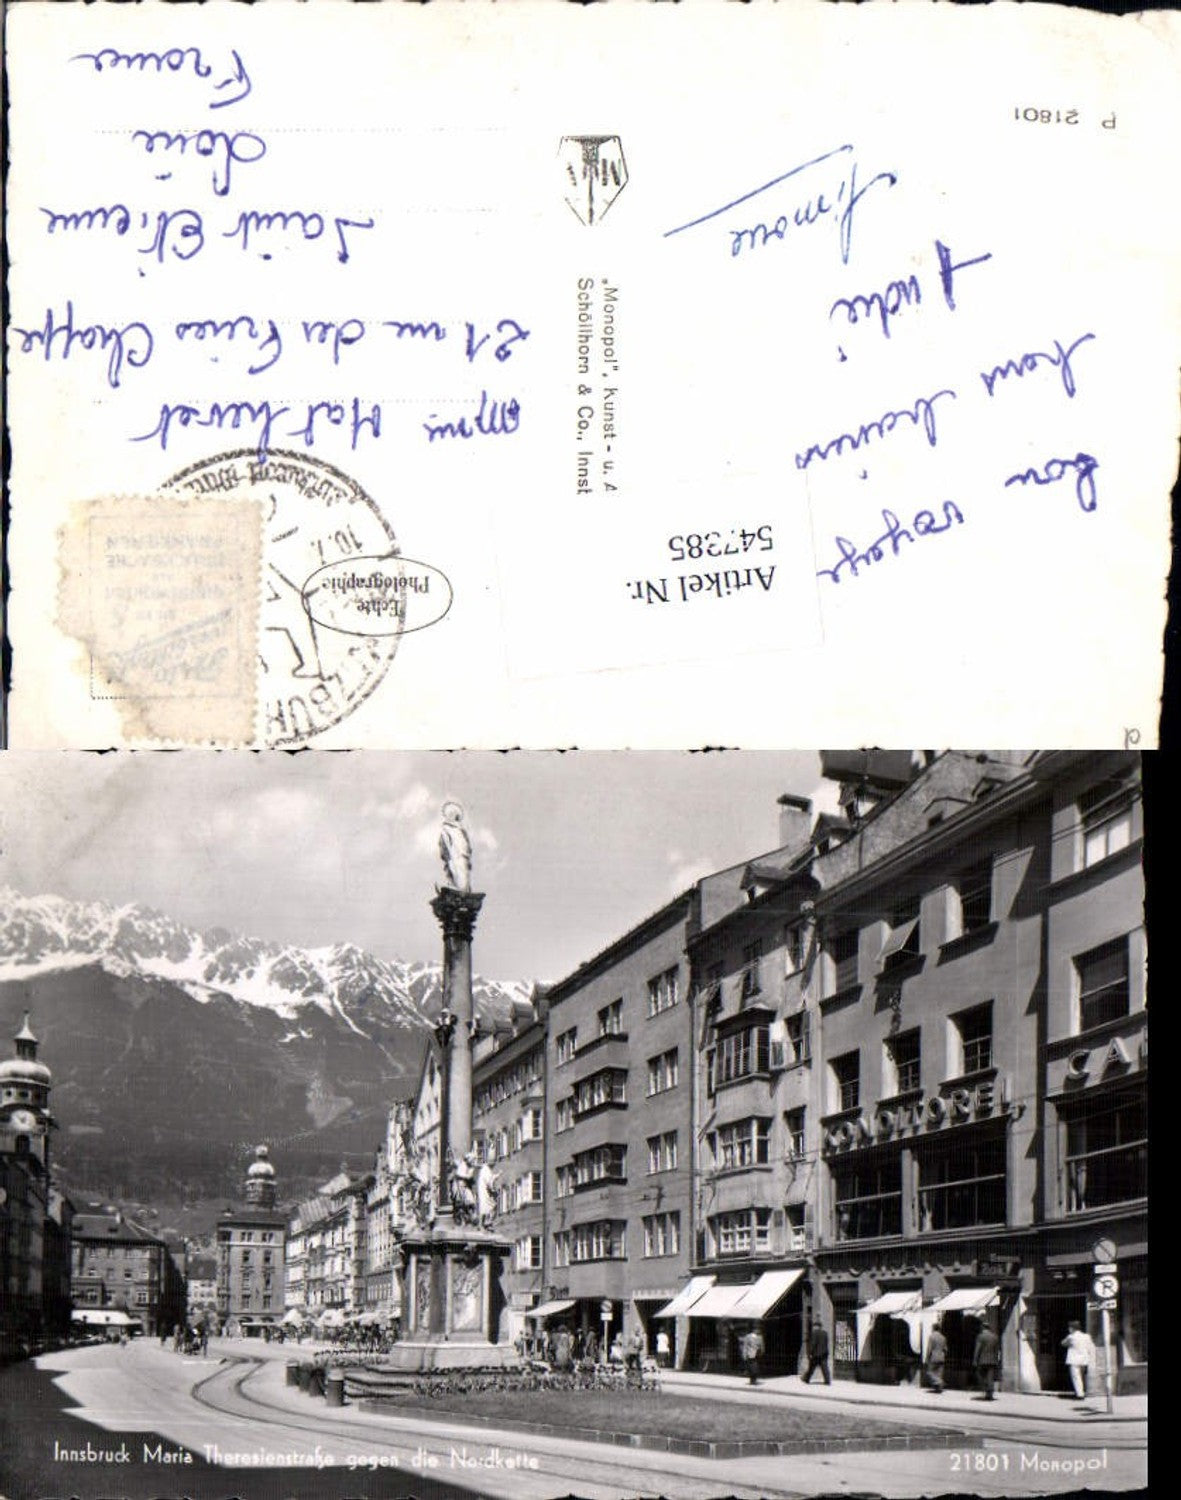 P 21801
bon voyage
bons baisers
André
Simone
"Monopol", Kunst- u. 
Schöllhorn & Co., Innsb
Echte
Photographie
10.7.
Mathevet
21 rue des Frères Chappe
Saint Etienne
Loire
France
Artikel Nr.
547385
KONDITOREI
CA
Innsbruck Maria Theresienstraße gegen die Nordkette
21801 Monopol